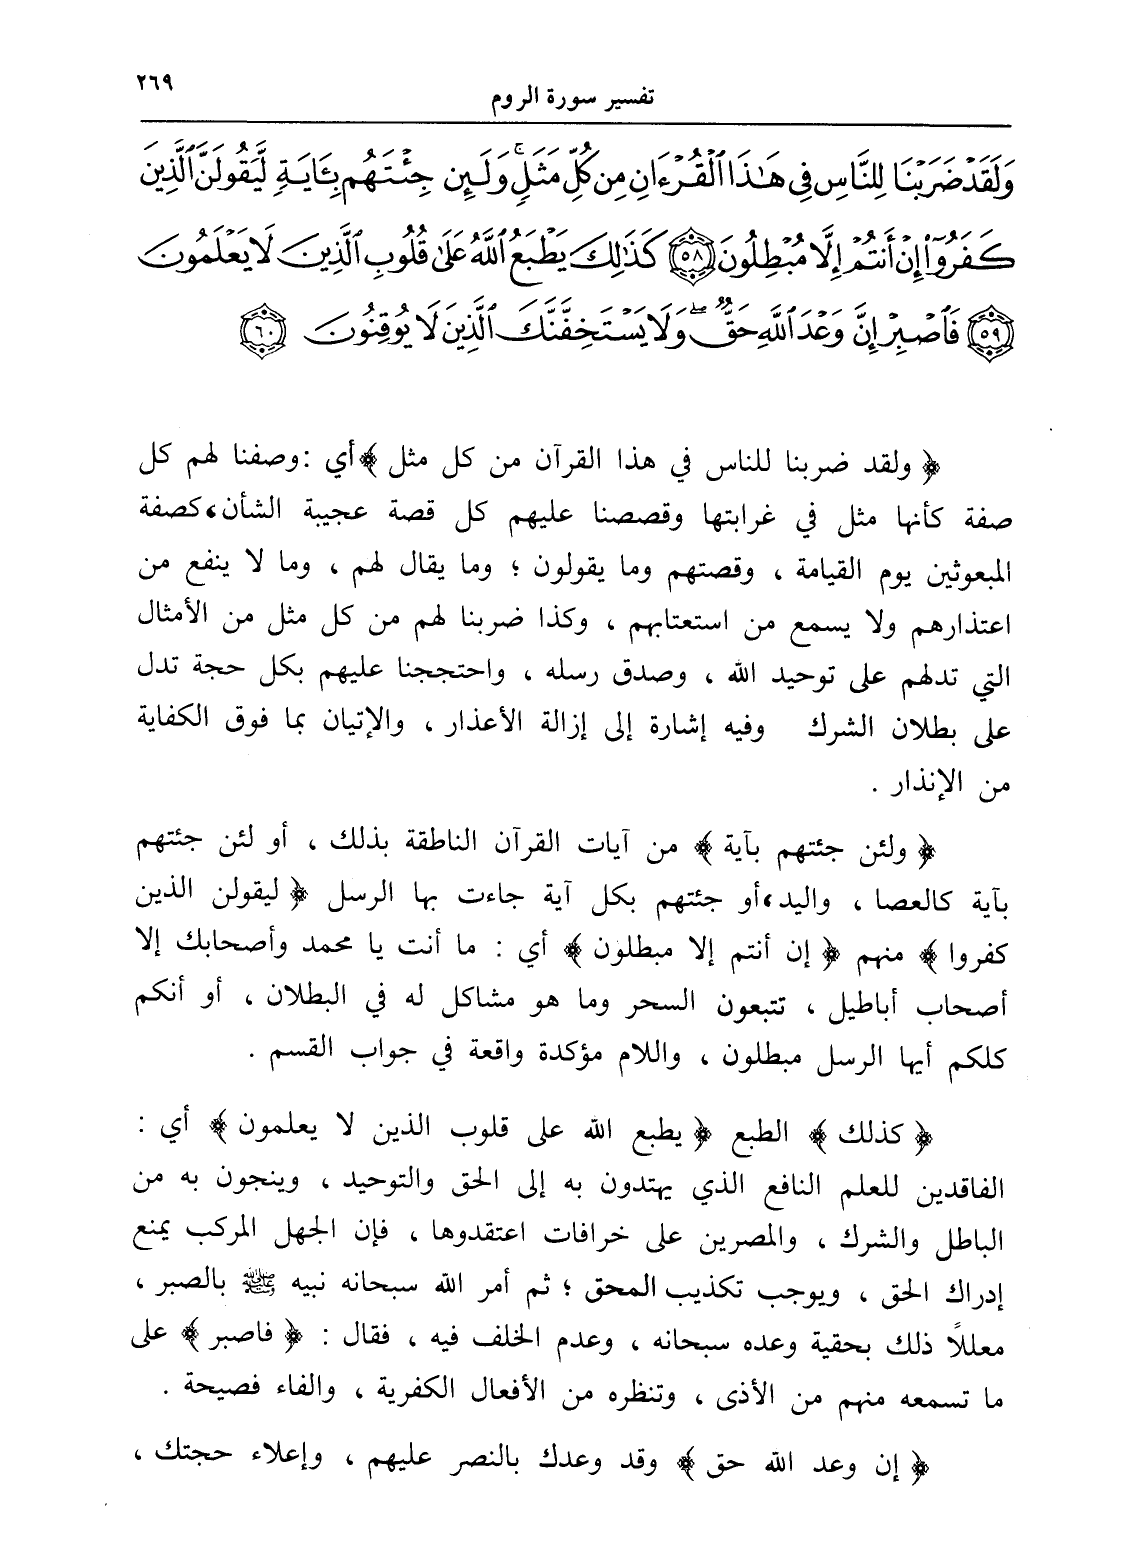 ٢٦٩
تفسير سورة الروم
وَلَقَدْ ضَرَبْنَا لِلنَّاسِ فِي هَٰذَا ٱلْقُرْءَانِ مِن كُلِّ مَثَلٍۚ وَلَئِن جِئْتَهُم بِـَٔايَةٍ لَّيَقُولَنَّ ٱلَّذِينَ
كَفَرُوٓا۟ إِنْ أَنتُمْ إِلَّا مُبْطِلُونَ ﴿٥٨﴾ كَذَٰلِكَ يَطْبَعُ ٱللَّهُ عَلَىٰ قُلُوبِ ٱلَّذِينَ لَا يَعْلَمُونَ
﴿٥٩﴾ فَٱصْبِرْ إِنَّ وَعْدَ ٱللَّهِ حَقٌّۖ وَلَا يَسْتَخِفَّنَّكَ ٱلَّذِينَ لَا يُوقِنُونَ ﴿٦٠﴾
﴿ ولقد ضربنا للناس في هذا القرآن من كل مثل ﴾ أي : وصفنا لهم كل
صفة كأنها مثل في غرابتها وقصصنا عليهم كل قصة عجيبة الشأن، كصفة
المبعوثين يوم القيامة ، وقصتهم وما يقولون ؛ وما يقال لهم ، وما لا ينفع من
اعتذارهم ولا يسمع من استعتابهم ، وكذا ضربنا لهم من كل مثل من الأمثال
التي تدلهم على توحيد الله ، وصدق رسله ، واحتججنا عليهم بكل حجة تدل
على بطلان الشرك وفيه إشارة إلى إزالة الأعذار ، والإتيان بما فوق الكفاية
من الإنذار .
﴿ ولئن جئتهم بآية ﴾ من آيات القرآن الناطقة بذلك ، أو لئن جئتهم
بآية كالعصا ، واليد، أو جئتهم بكل آية جاءت بها الرسل ﴿ ليقولن الذين
كفروا ﴾ منهم ﴿ إن أنتم إلا مبطلون ﴾ أي : ما أنت يا محمد وأصحابك إلا
أصحاب أباطيل ، تتبعون السحر وما هو مشاكل له في البطلان ، أو أنكم
كلكم أيها الرسل مبطلون ، واللام مؤكدة واقعة في جواب القسم .
﴿ كذلك ﴾ الطبع ﴿ يطبع الله على قلوب الذين لا يعلمون ﴾ أي :
الفاقدين للعلم النافع الذي يهتدون به إلى الحق والتوحيد ، وينجون به من
الباطل والشرك ، والمصرين على خرافات اعتقدوها ، فإن الجهل المركب يمنع
إدراك الحق ، ويوجب تكذيب المحق ؛ ثم أمر الله سبحانه نبيه ﷺ بالصبر ،
معللاً ذلك بحقية وعده سبحانه ، وعدم الخلف فيه ، فقال : ﴿ فاصبر ﴾ على
ما تسمعه منهم من الأذى ، وتنظره من الأفعال الكفرية ، والفاء فصيحة .
﴿ إن وعد الله حق ﴾ وقد وعدك بالنصر عليهم ، وإعلاء حجتك ،